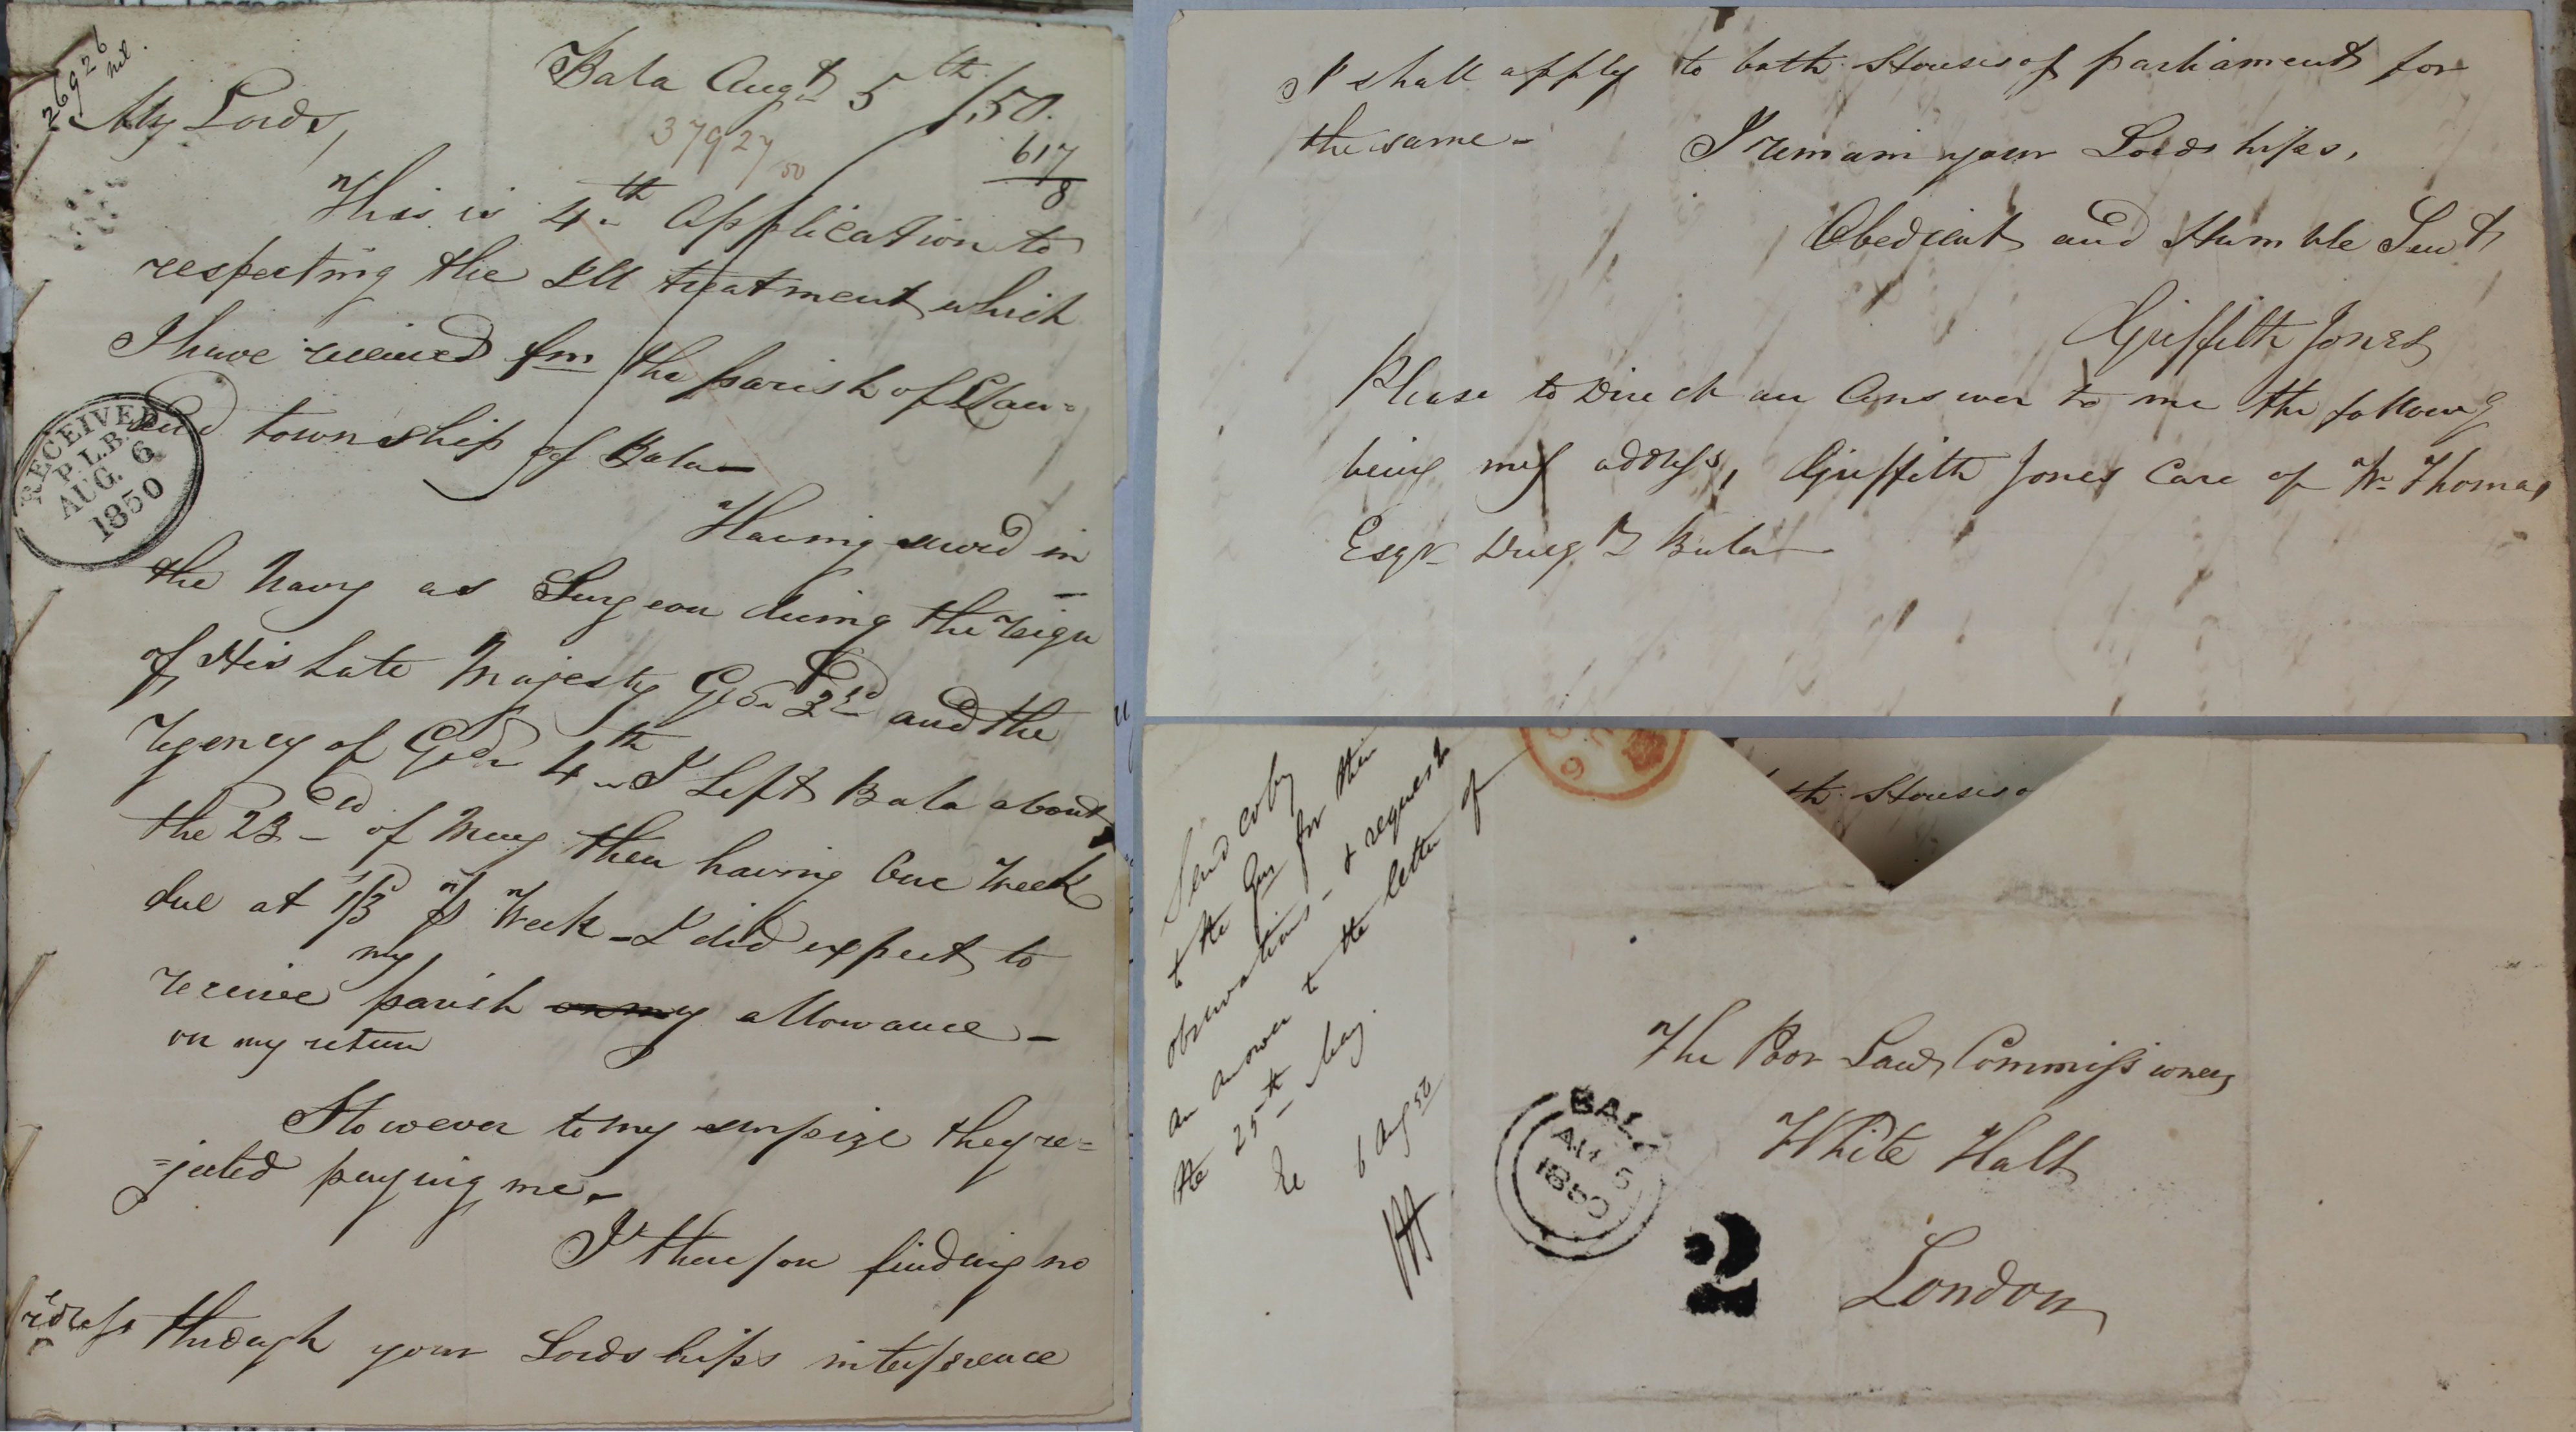 26926
nil.
Bala Augt 5th /50.
37927
50
617
8
My Lords,
This is 4th application to
respecting the Ill treatment which
I have received fm the parish of Llan=
and township of Bala—
RECEIVED
P.L.B.
AUG. 6
1850
Having served in
the Navy as Surgeon during the reign
of His Late Majesty Geo. 3rd and the
regency of Geo 4th I Left Bala about
the 23rd of May then having One Week
due at 1/3 P Week - I did expect to
my
receive parish on my allowance —
on my return
However to my surpize they re=
=jected paying me —
I therefore finding no
redress through your Lordships interference
I shall apply to both Houses of parliament for
the same —
I remain your Lordships,
Obedient and Humble Servt
Griffith Jones
Please to Direct an Answer to me the followg
being my address, Griffith Jones Care of Wm Thomas
Esqr Drugt Bala—
th Houses o
Send coby
to the Gus for their
observations - & request
an answer to the letter of
the 25th May.
6 Aug 50
The Poor Law Commissioners
White Hall
London
BALA
AU 5
1850
2